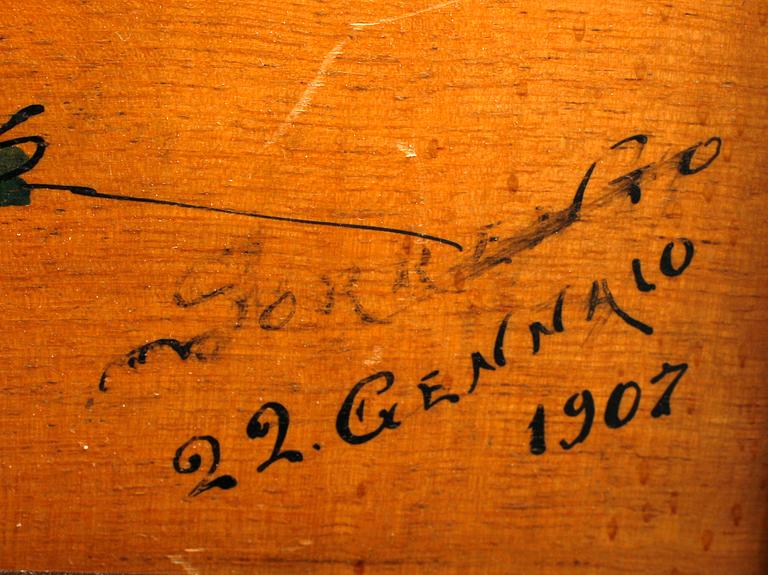 Sorrento
22. GENNAIO
1907